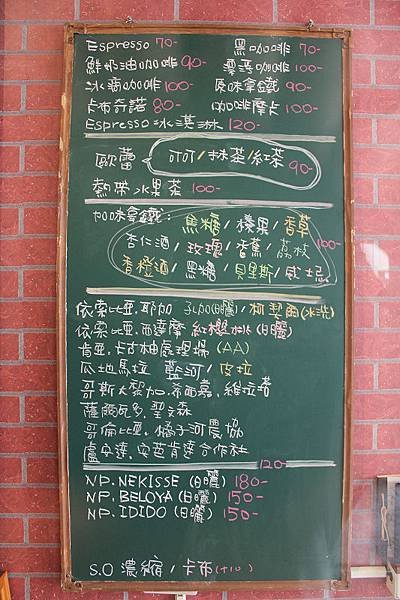 Espresso 70- 黑咖啡 70-
鮮奶油咖啡 90- 漂浮咖啡 100-
冰滴咖啡 100- 原味拿鐵 90-
卡布奇諾 80- 咖啡摩卡 100-
Espresso冰淇淋 120-
歐蕾 可可/抹茶/紅茶 90-
熱帶水果茶 100-
加味拿鐵: 焦糖/榛果/香草
杏仁酒/玫瑰/香蕉/荔枝 100-
香橙酒/黑糖/貝里斯/威士忌
依索比亞.耶加 (日曬)/柯契爾(水洗)
依索比亞.西達摩 紅櫻桃(日曬)
肯亞.卡古柚處理場 (AA)
瓜地馬拉 藍河/皮拉
哥斯大黎加.希西嘉.維拉若
薩爾瓦多.聖文森
哥倫比亞.橘子河農協
盧安達.安芭肯達合作社
120-
NP.NEKISSE (日曬) 180-
NP.BELOYA (日曬) 150-
NP.IDIDO (日曬) 150-
S.O 濃縮/卡布(+10)